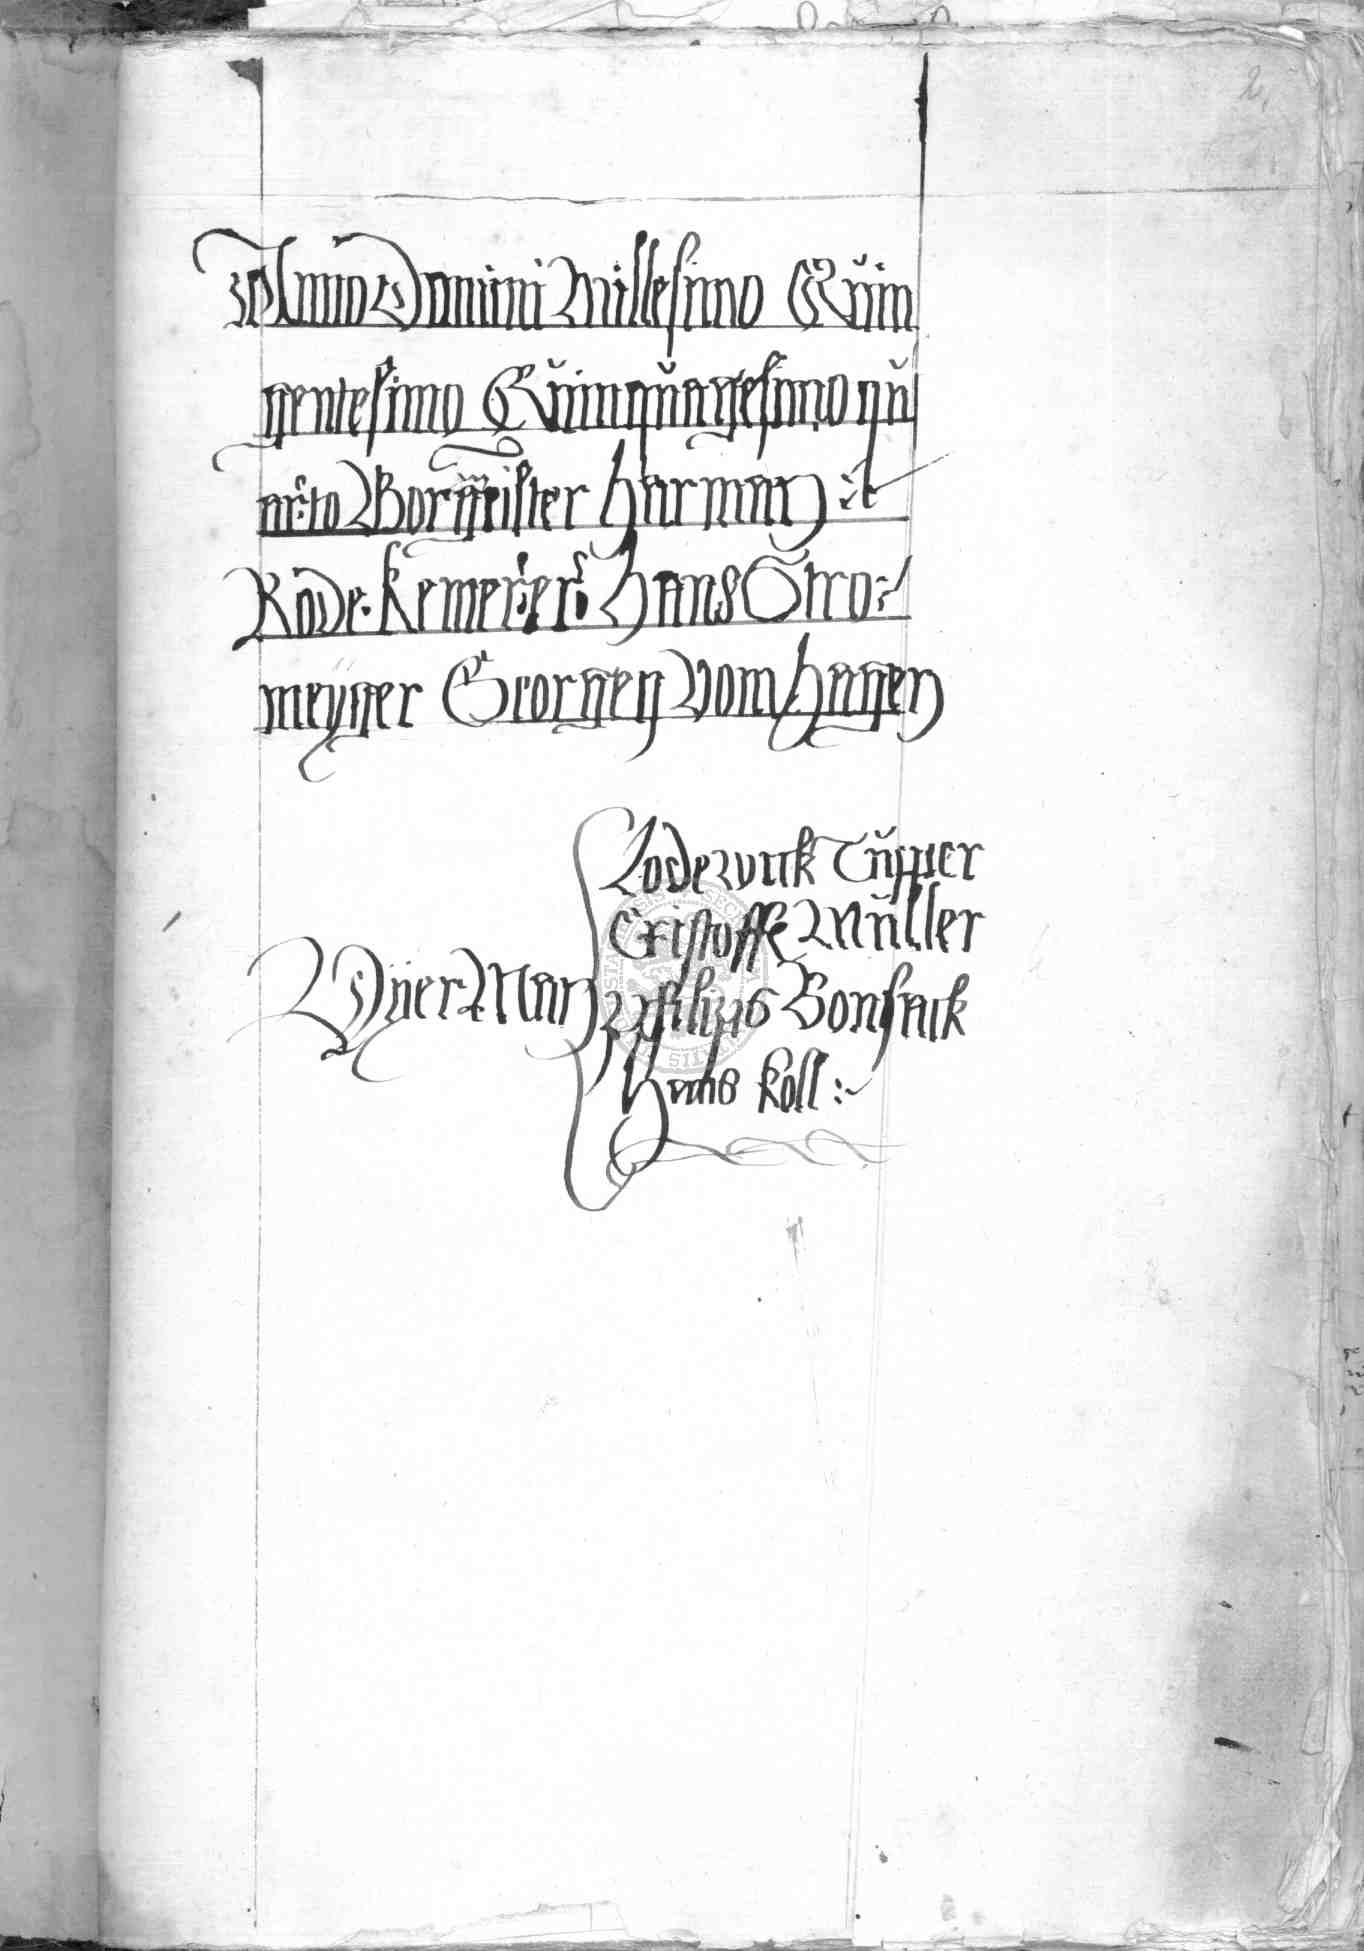 2.
Anno Domini Millesimo Quin
gentesimo Quinquagesimo qu
arto Borgmeister Harman
Rode. Kemerer Hans Stro-
meyger Georgen vom Hagen
Lodewick Tupper
Cristoffe Müller
Vyer Man
Bonsack
Hans Köll